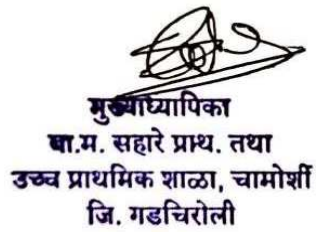 मुख्याध्यापिका
बा.म. सहारे प्राथ. तथा
उच्च प्राथमिक शाळा, चामोर्शी
जि. गडचिरोली